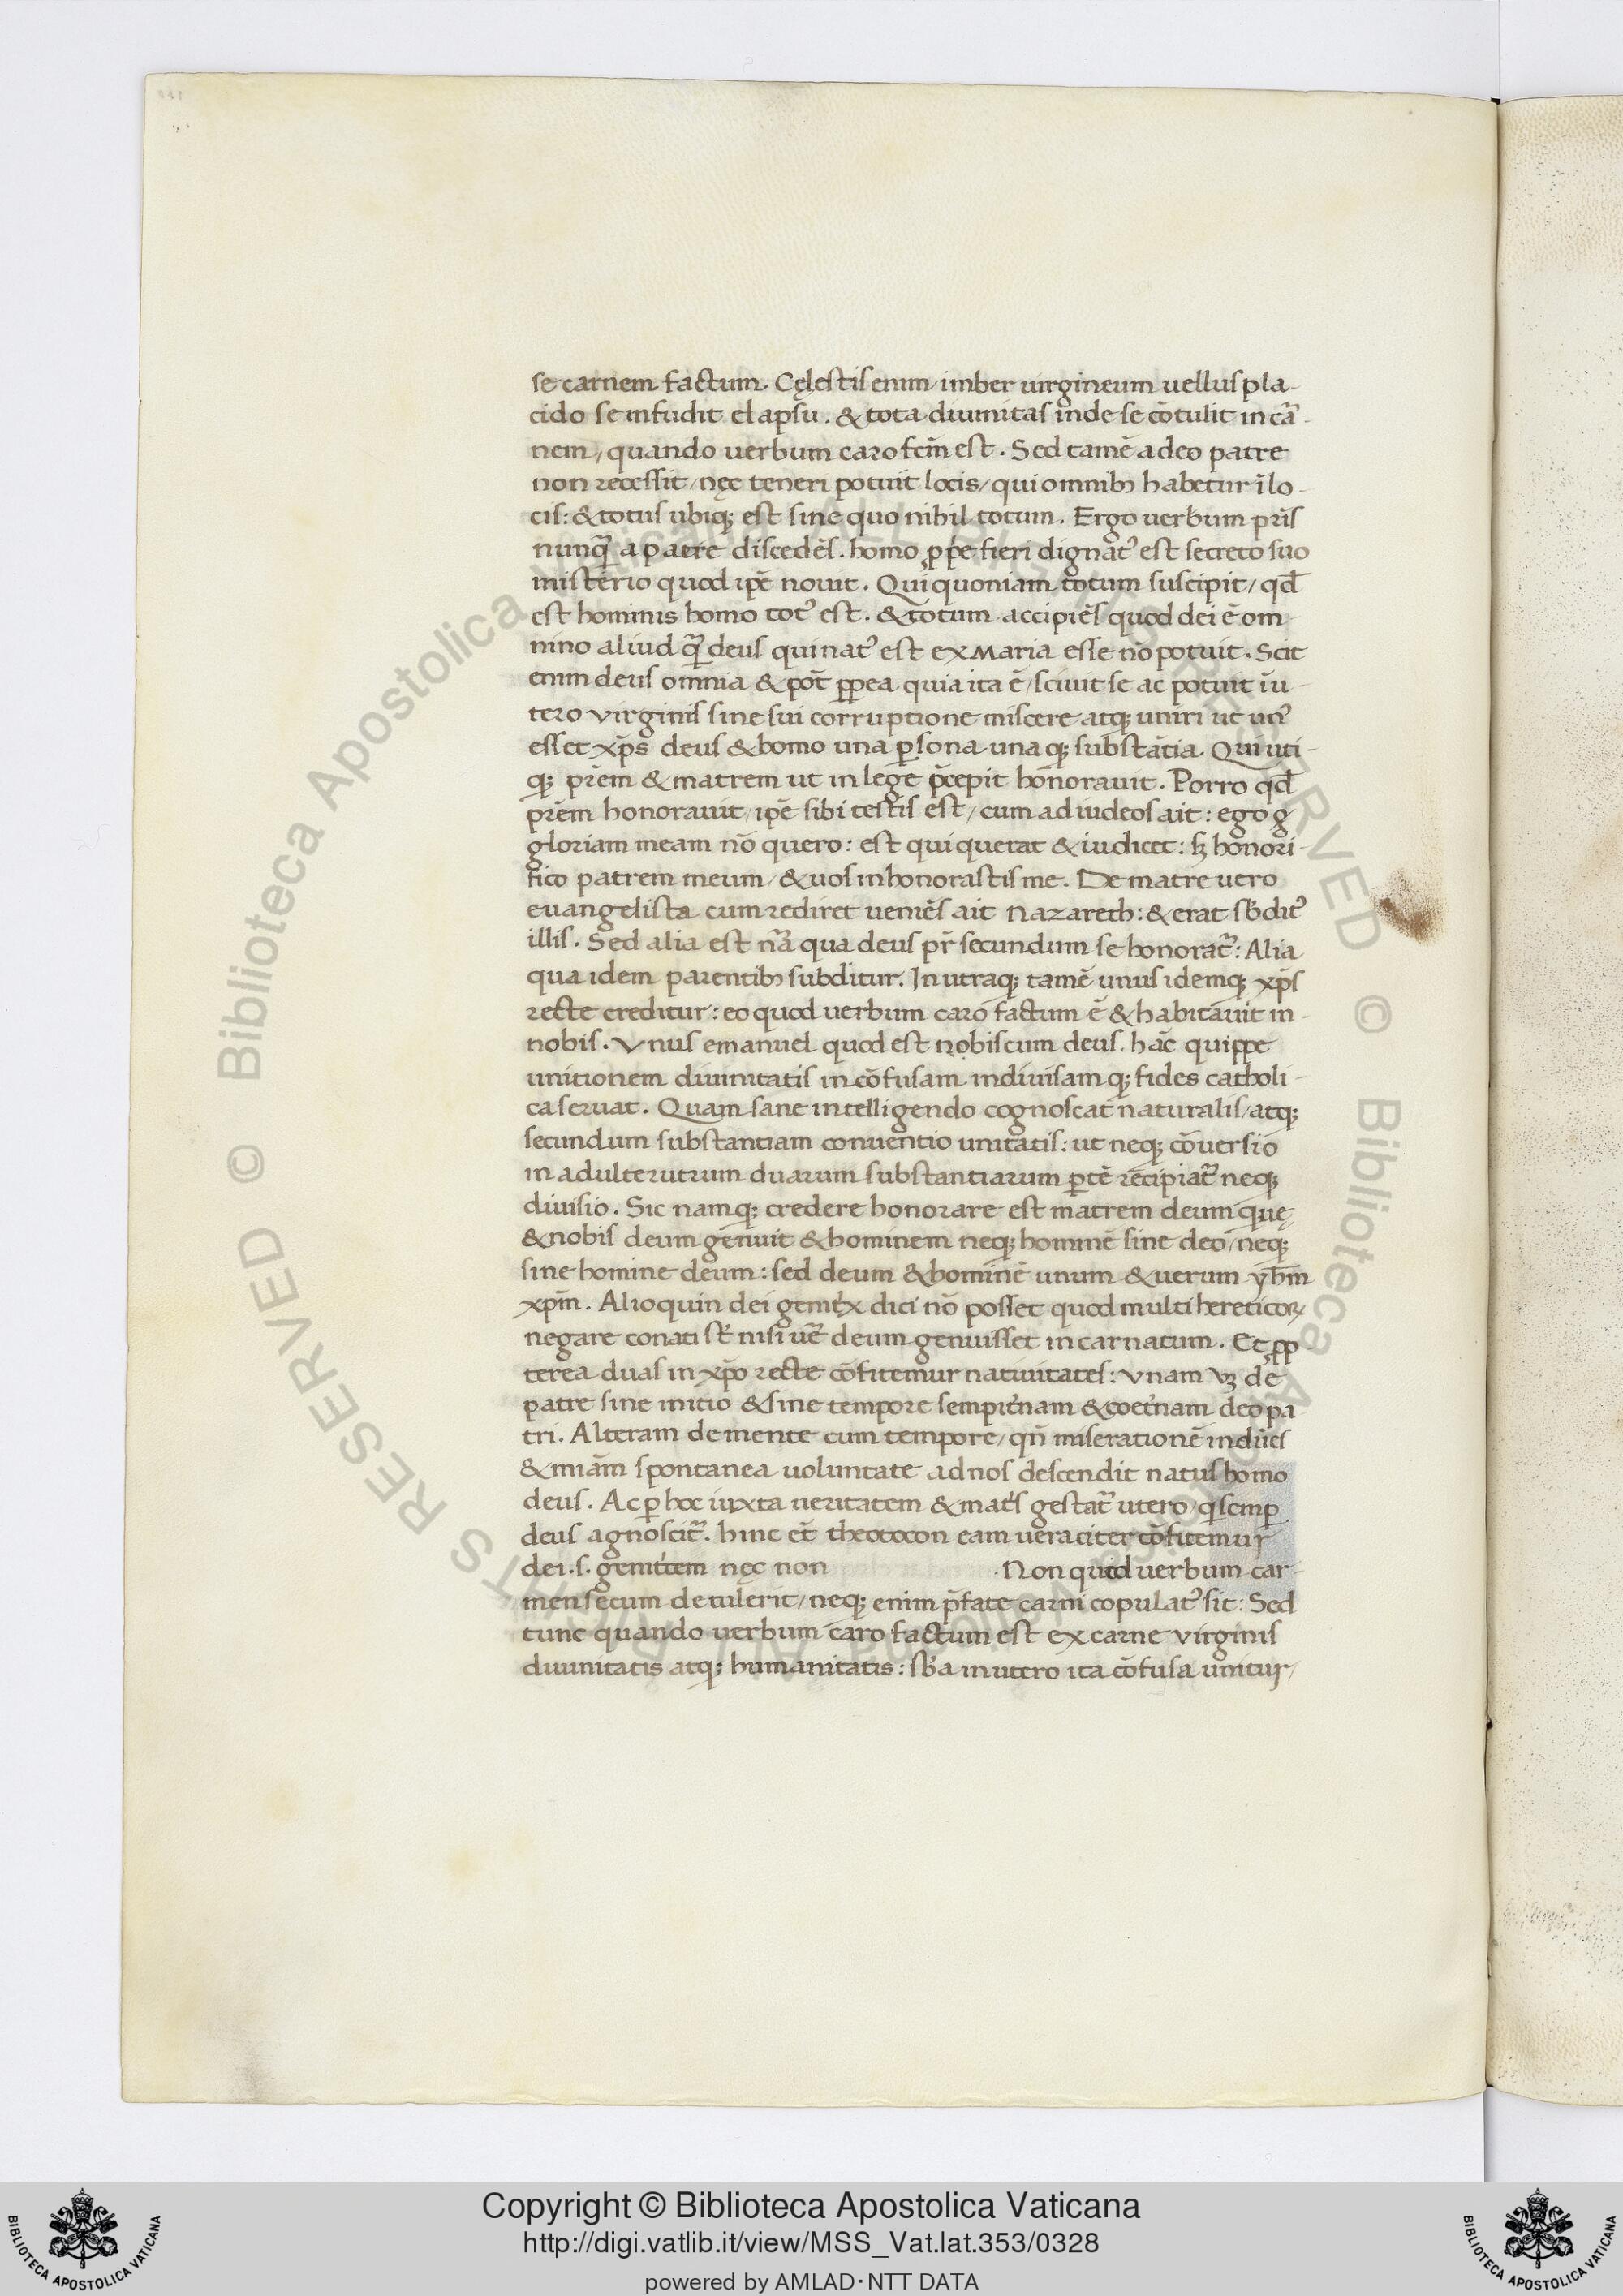 se carnem factum. Cęlestis enim imber uirgineum uellus pla-
cido se infudit elapsu. & tota diuinitas inde se cõtulit in cã-
nem, quando uerbum caro fcm̃ est. Sed tamẽ a deo patre
non recessit, nęc teneri potuit locis, qui omnibꝫ habetur ĩ lo-
cis: & totus ubiq; est sine quo nihil totum. Ergo uerbum pr̃is
nunq̃ a patre discedẽs. homo ꝓp̃e fieri dignat᾽ est secreto suo
misterio quod ip̃e nouit. Qui quoniam totum suscipit, qđ
est hominis homo tot᾽ est. & totum accipiẽs quod dei ẽ om
nino aliud q̃ deus qui nat᾽ est ex Maria esse nõ potuit. Scit
enim deus omnia & pot̃ ꝓpea quia ita ẽ, sciuit se ac potuit ĩ u-
tero virginis sine sui corruptione miscere atq; uniri ut un᾽
esset xp̃s deus & homo una ꝑsona una q; substãtia. Qui uti-
q; pr̃em & matrem ut in lege p̃cepit honorauit. Porro qđ
pr̃em honorauit, ip̃e sibi testis est, cum ad iudeos ait: ego g̊
gloriam meam nõ quero: est qui querat & iudicet: sꝫ honori-
fico patrem meum, & uos inhonorastis me. De matre uero
euangelista cum rediret ueniẽs ait Nazareth: & erat sb̃dit᾽
illis. Sed alia est nã̃ qua deus pr̃ secundum se honorat̃: Alia
qua idem parentibꝫ subditur. In utraq; tamẽ unus idemq; xp̃s
recte creditur: eo quod uerbum caro factum ẽ & habitauit in
nobis. Vnus emanuel quod est nobiscum deus. hãc quippe
unitionem diuinitatis incõfusam indiuisam q; fides catholi-
ca seruat. Quam sane intelligendo cognoscat naturalis, atq;
secundum substantiam conuentio unitatis: ut neq; cõuersio
in adulterutrum duarum substantiarum ꝑtẽ recipiat̃ neq;
diuisio. Sic namq; credere honorare est matrem deum quę
& nobis deum genuit & hominem neq; hominẽ sine deo, neq;
sine homine deum: sed deum & hominẽ unum & uerum yħm
xp̃m. Alioquin dei genit̾x dici nõ posset quod multi hereticoꝝ
negare conati st̃ nisi uẽ deum genuisset incarnatum. Et ꝓp
terea duas in xp̃o recte cõfitemur natiuitates: vnam vꝫ de
patre sine initio & sine tempore sempit̾nam & coet̾nam deo pa
tri. Alteram de mente cum tempore, qñ miserationẽ indũes
& miãm spontanea uoluntate ad nos descendit natus homo
deus. Ac ꝑ hoc iuxta ueritatem & mat̾s gestat̃ utero, q semꝑ
deus agnoscit̃. hinc et̃ theotocon eam ueraciter cõfitemur
dei .s. genit̾cem nęc non . Non quod uerbum car-
men secum detulerit, neq; enim p̃fate carni copulat᾽ sit: Sed
tunc quando uerbum caro factum est ex carne virginis
diuinitatis atq; humanitatis: sb̃a in utero ita cõfusa unitur,
Copyright © Biblioteca Apostolica Vaticana
http://digi.vatlib.it/view/MSS_Vat.lat.353/0328
powered by AMLAD·NTT DATA
BIBLIOTECA APOSTOLICA VATICANA
BIBLIOTECA APOSTOLICA VATICANA